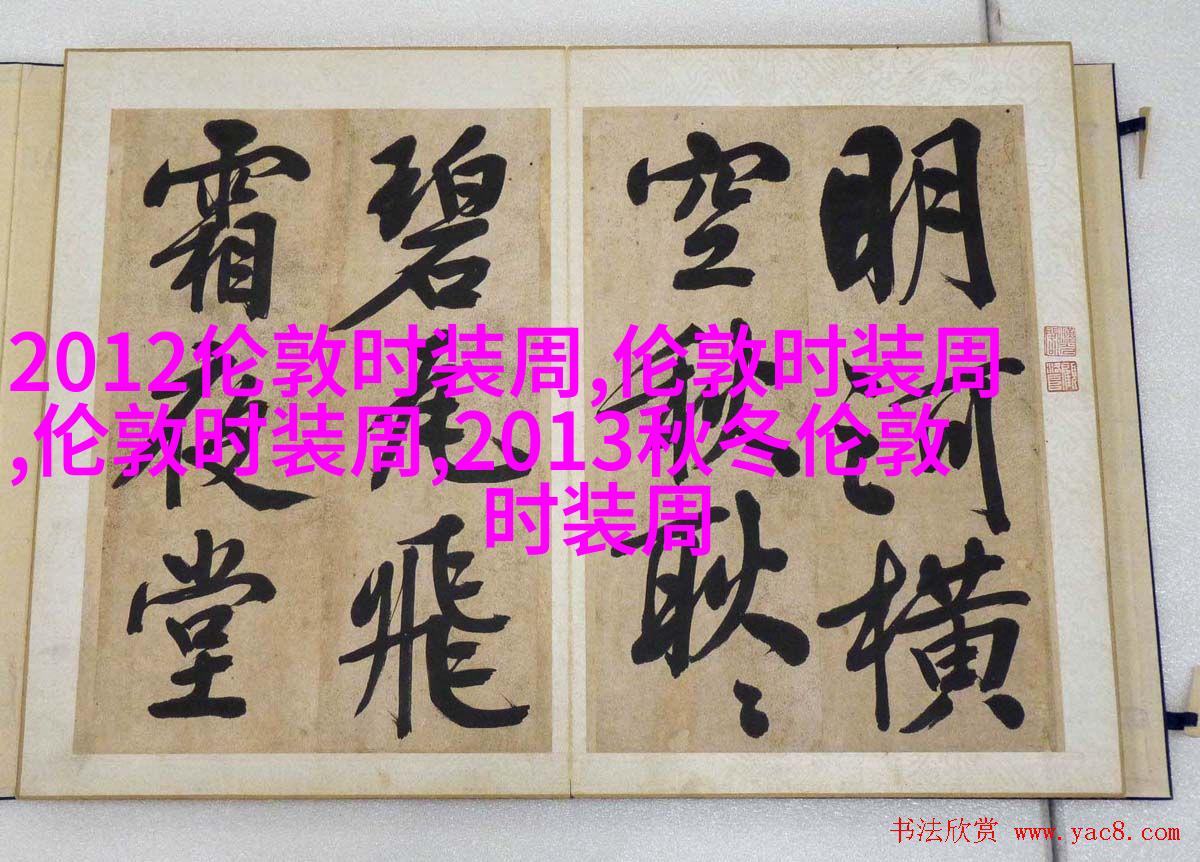 明河橫
空秋耿〻
碧瓦飛
霜夜堂
2012伦敦时装周,伦敦时装周
,伦敦时装周,2013秋冬伦敦
时装周
书法欣赏 www.yac8.com